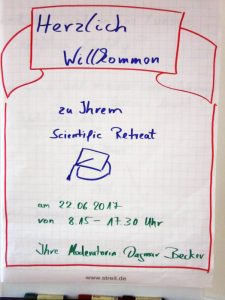 Herzlich
Willkommen
zu Ihrem
Scientific Retreat
am 22.06.2017
von 8.15 - 17.30 Uhr
Ihre Moderatorin Dagmar Becker
www.streit.de